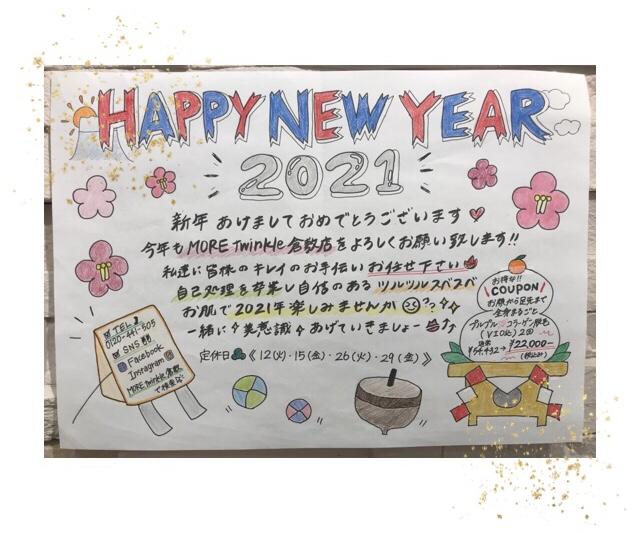 HAPPY NEW YEAR
2021
新年 あけまして おめでとうございます
今年も MORE Twinkle 倉敷店をよろしくお願い致します!!
私達に皆様の キレイのお手伝い お任せ下さい
自己処理を卒業し自信のある ツルツルスベスベ
お肌で2021年楽しみませんか ??
一緒に 美意識 あげていきましょー
定休日 《12(火)・15(金)・26(火)・29(金)》
TEL
0120-441-505
SNS
Facebook
Instagram
MORE Twinkle 倉敷
で検索
お得な!!
COUPON
お顔から足先まで
全身まるごと
プルプル コラーゲン脱毛
(VIO込) 2回
通常
¥54,432→ ¥22,000-
(税込み)